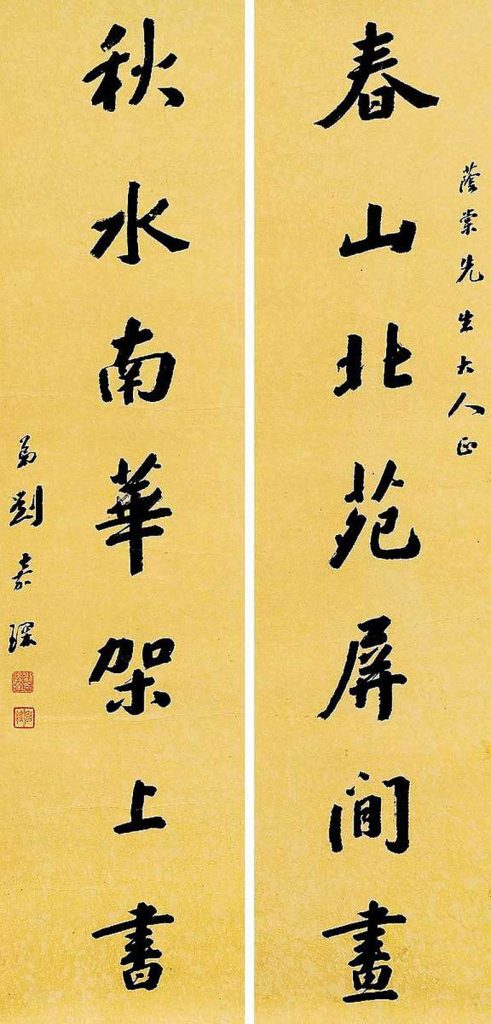 蔭棠先生大人正
春山北苑屏間畫
秋水南華架上書
弟劉嘉琛